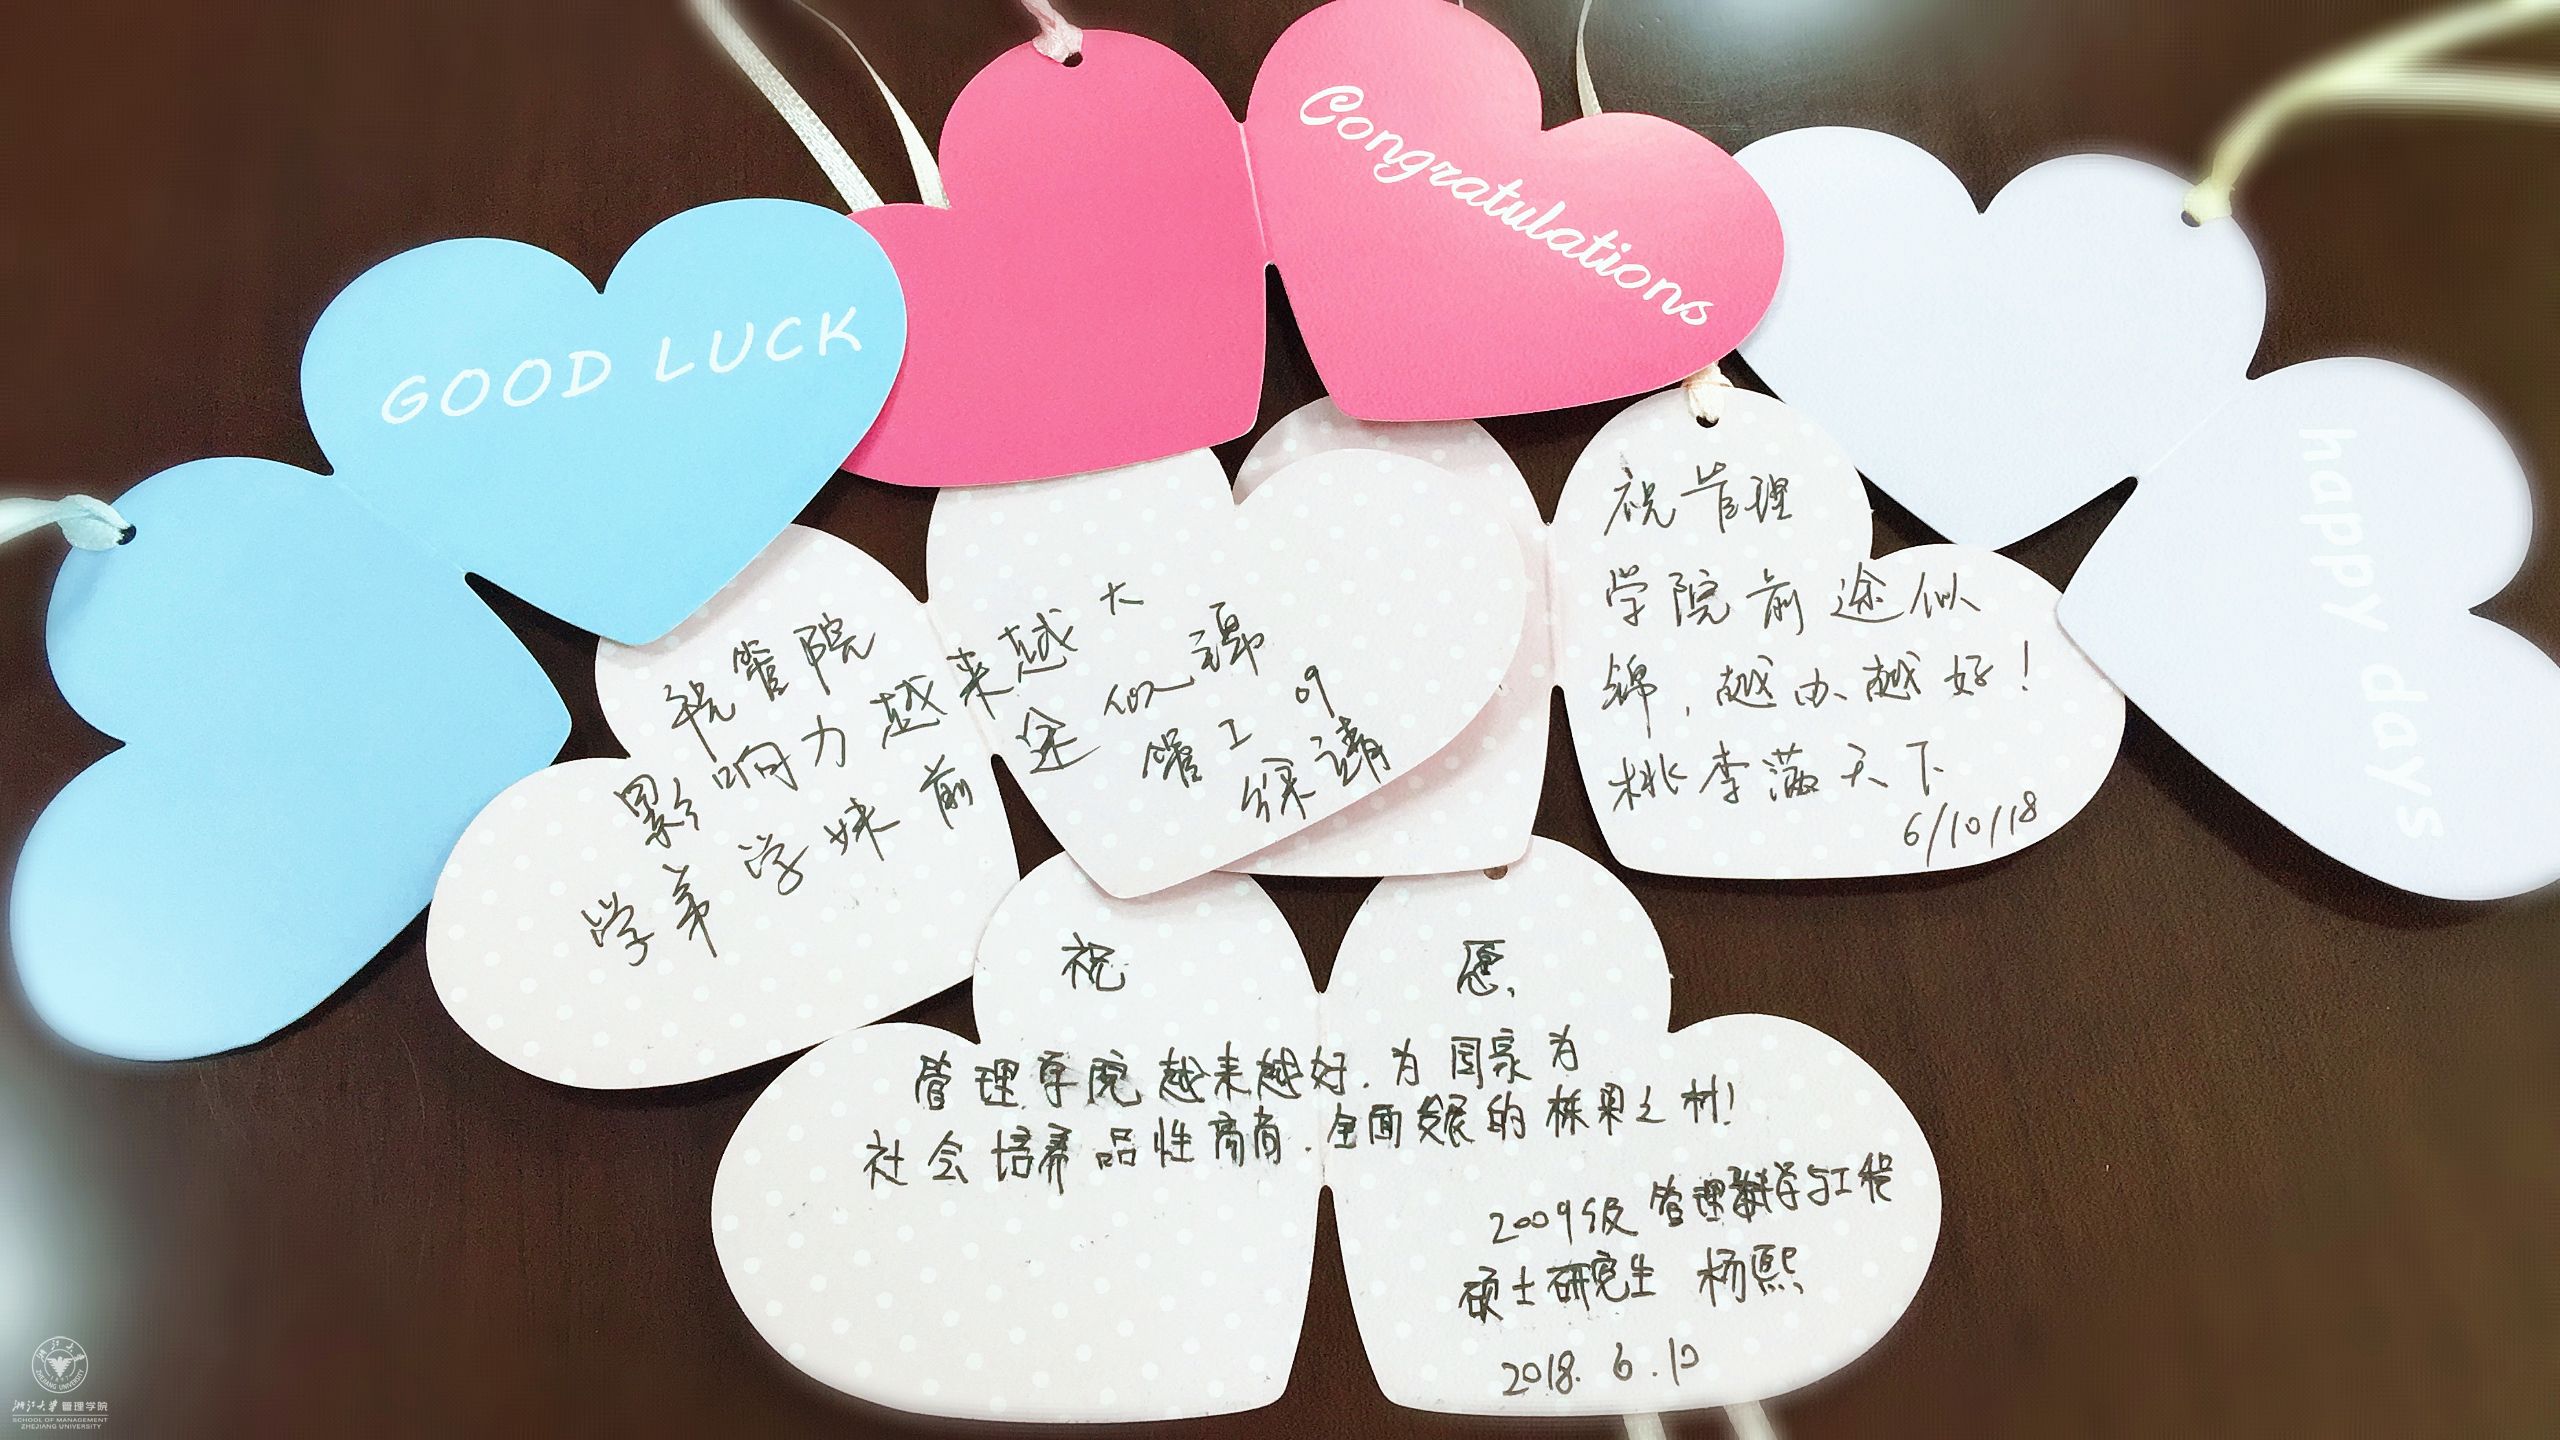 GOOD LUCK
Congratulations
happy days
祝管院
影响力越来越大
学弟学妹前途似锦
管工 09
徐靖
祝管理
学院前途似
锦，越办越好！
桃李满天下
6/10/18
祝愿，
管理学院越来越好，为国家为
社会培养品性高尚，全面发展的栋梁之材！
2009级管理科学与工程
硕士研究生 杨熙
2018.6.10
浙江大学
ZHEJIANG UNIVERSITY
1897
浙江大学管理学院
SCHOOL OF MANAGEMENT
ZHEJIANG UNIVERSITY